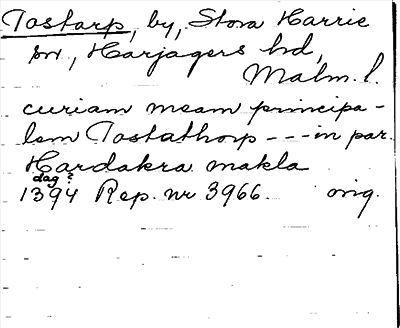 Tostarp, by, Stora Harrie
sn, Harjagers hd,
Malm. l.
curiam meam principa-
lem Tostathorp --- in par.
Hardakra makla
dag?
1394 Rep. nr 3966. orig.